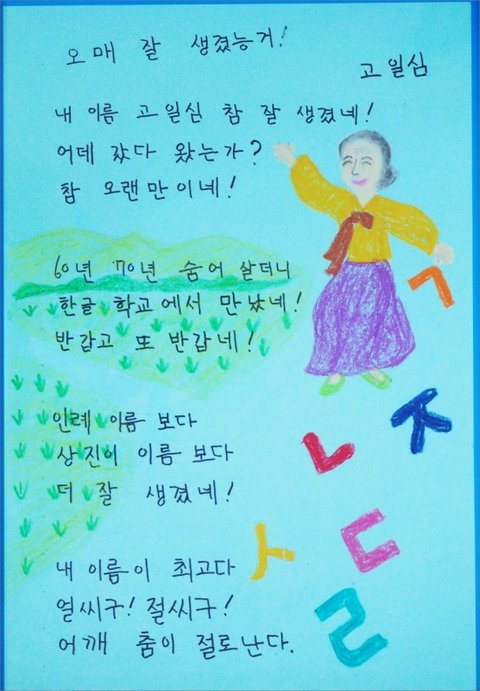 오매 잘 생겼능거!
고일심
내 이름 고일심 참 잘 생겼네!
어데 갔다 왔는가?
참 오랜만이네!
60년 70년 숨어 살더니
한글 학교에서 만났네!
반갑고 또 반갑네!
인례 이름 보다
상진이 이름 보다
더 잘 생겼네!
내 이름이 최고다
얼씨구! 절씨구!
어깨 춤이 절로난다.
ㄱ
ㅈ
ㄴ
ㅏ
ㄷ
ㄹ